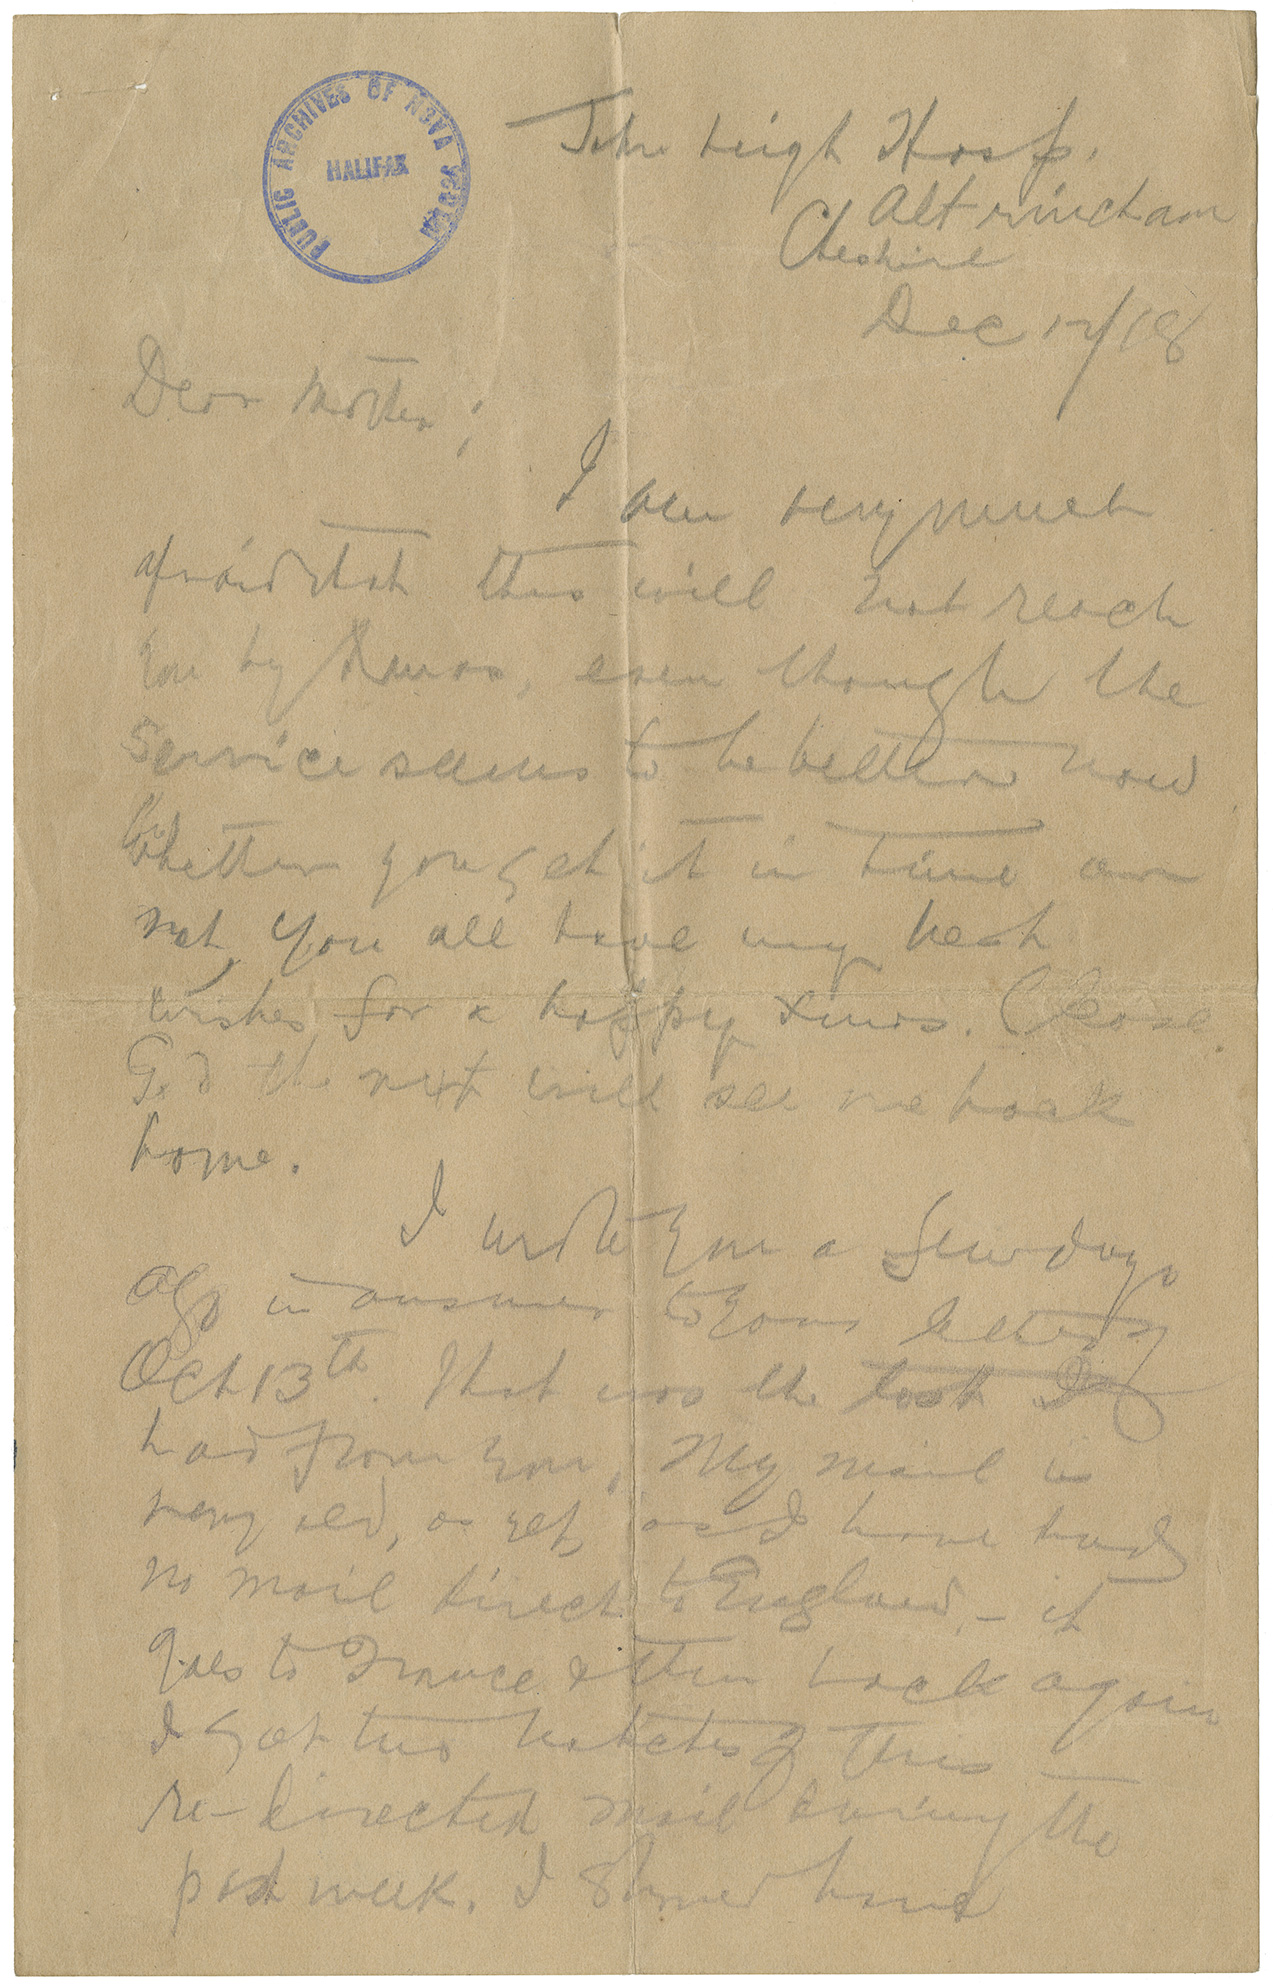 PUBLIC ARCHIVES OF NOVA SCOTIA
HALIFAX
John Leigh Hosp.
Altrincham
Cheshire
Dec 12/18
Dear Mother;
I am very much
afraid that this will not reach
you by Xmas, even though the
service seems to be better now
but
whether you get it in time or
not, you all have my best
wishes for a happy Xmas. Please
God the next will see me back
home.
I wrote you a few days
ago in answer to your letter of
Oct 13th. That was the last I
had from you, My mail is
very old, as yet, as I have had
no mail direct to England, - it
goes to France & then back again
I got two batches of this
re-directed mail during the
past week. I should have